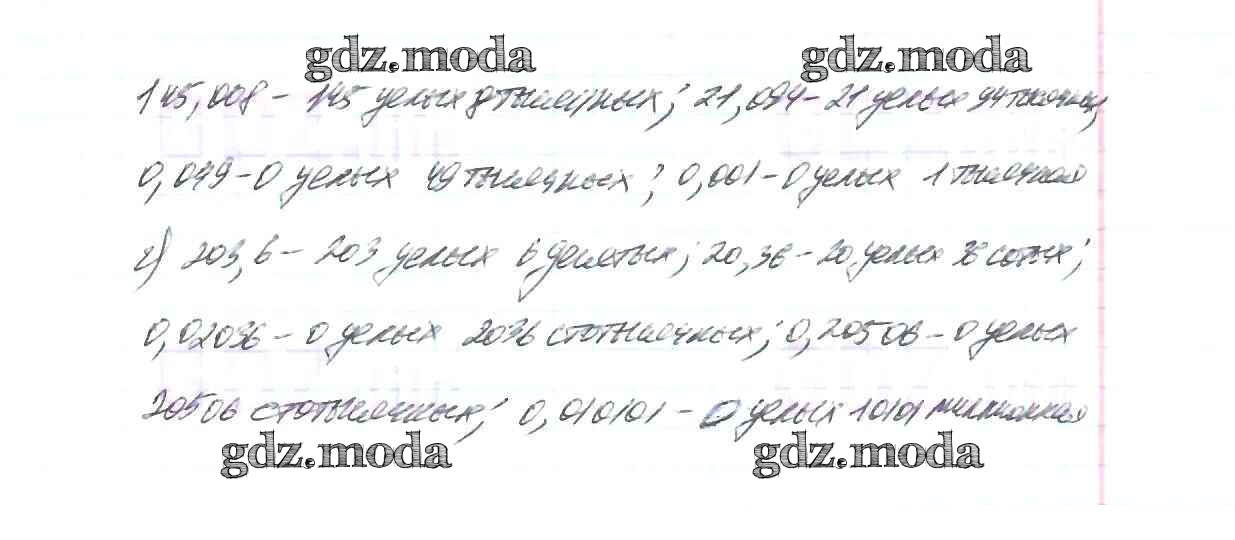 gdz.moda gdz.moda
145,008 – 145 целых 8 тысячных; 21,094 – 21 целых 94 тысячных
0,049 – 0 целых 49 тысячных; 0,001 – 0 целых 1 тысячная
г) 203,6 – 203 целых 6 десятых; 20,36 – 20 целых 36 сотых;
0,02036 – 0 целых 2036 стотысячных; 0,20506 – 0 целых
20506 стотысячных; 0,010101 – 0 целых 10101 миллионная
gdz.moda gdz.moda